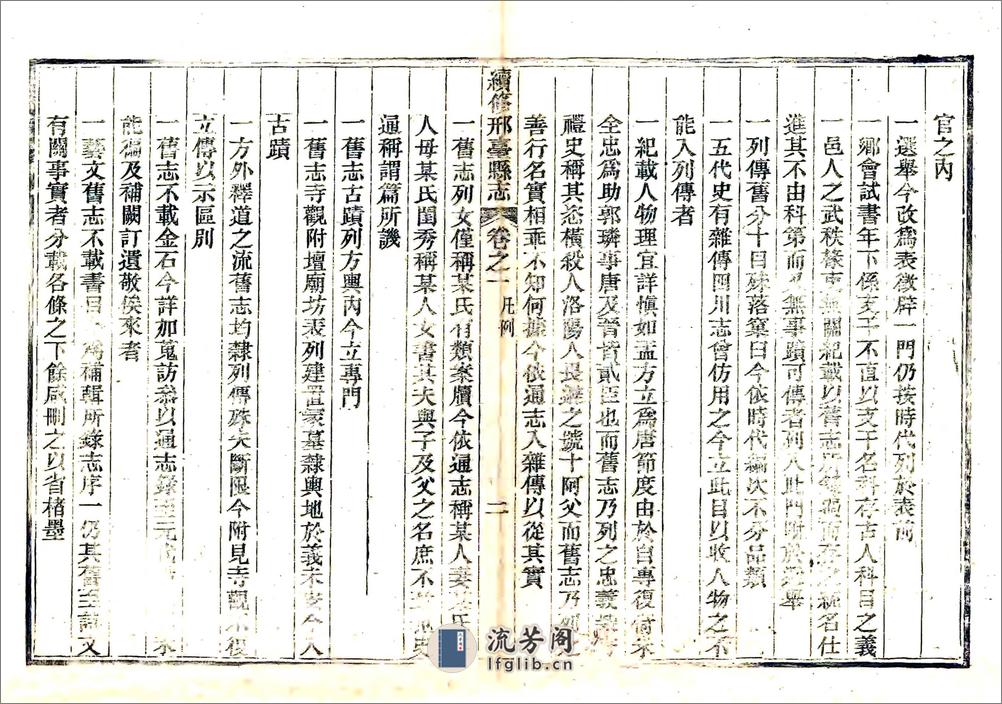 官之內
一選舉今改爲表徵辟一門仍按時代列於表前
一鄉會試書年下係支干不直以支干名科存古人科目之義
一邑人之武秩
進其不由科第而又無事蹟可傳者列入此門附於選舉
一列傳舊分十目殊落窠臼今依時代編次不分品類
一五代史有雜傳四川志曾仿用之今立此目以收人物之不
能入列傳者
一紀載人物理宜詳慎如孟方立爲唐節度由於自專復
全忠爲助郭璘事唐及晉皆貳臣也而舊志乃列之忠義
禮史稱其恣橫殺人洛陽人畏之號十阿父而舊志乃列
善行名實相乖不知何據今依通志入雜傳以從其實
續修邢臺縣志 卷之一 凡例 二
一舊志列女僅稱某氏有類案牘今依通志稱某人妻某氏
人母某氏閨秀稱某人女書其夫與子及父之名庶不
通稱謂篇所譏
一舊志古蹟列方輿內今立專門
一舊志寺觀附壇廟坊表列建置冢墓隸輿地於義未安今入
古蹟
一方外釋道之流舊志均隸列傳殊失斷限今附見寺觀不復
立傳以示區別
一舊志不載金石今詳加蒐訪叅以通志錄至元 未
能徧及補闕訂遺敬俟來者
一藝文舊志不載書目 爲補輯所錄志序一仍其舊至詩文
有關事實者分載各條之下餘咸刪之以省楮墨
流芳阁
lfglib.cn